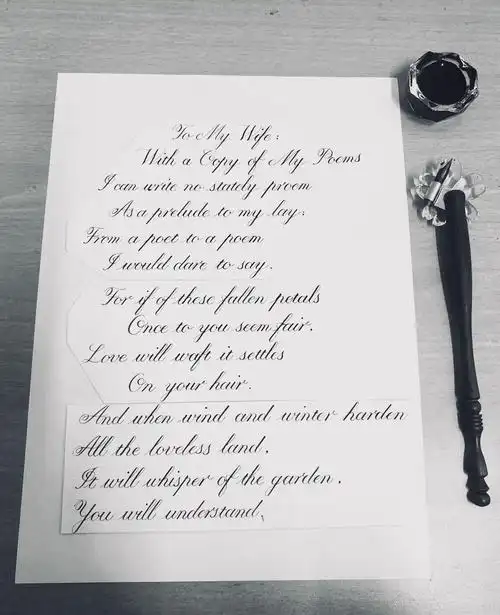 To My Wife:
With a Copy of My Poems
I can write no stately proem
As a prelude to my lay;
From a poet to a poem
I would dare to say.
For if of these fallen petals
Once to you seem fair,
Love will waft it settles
On your hair.
And when wind and winter harden
All the loveless land,
It will whisper of the garden,
You will understand,